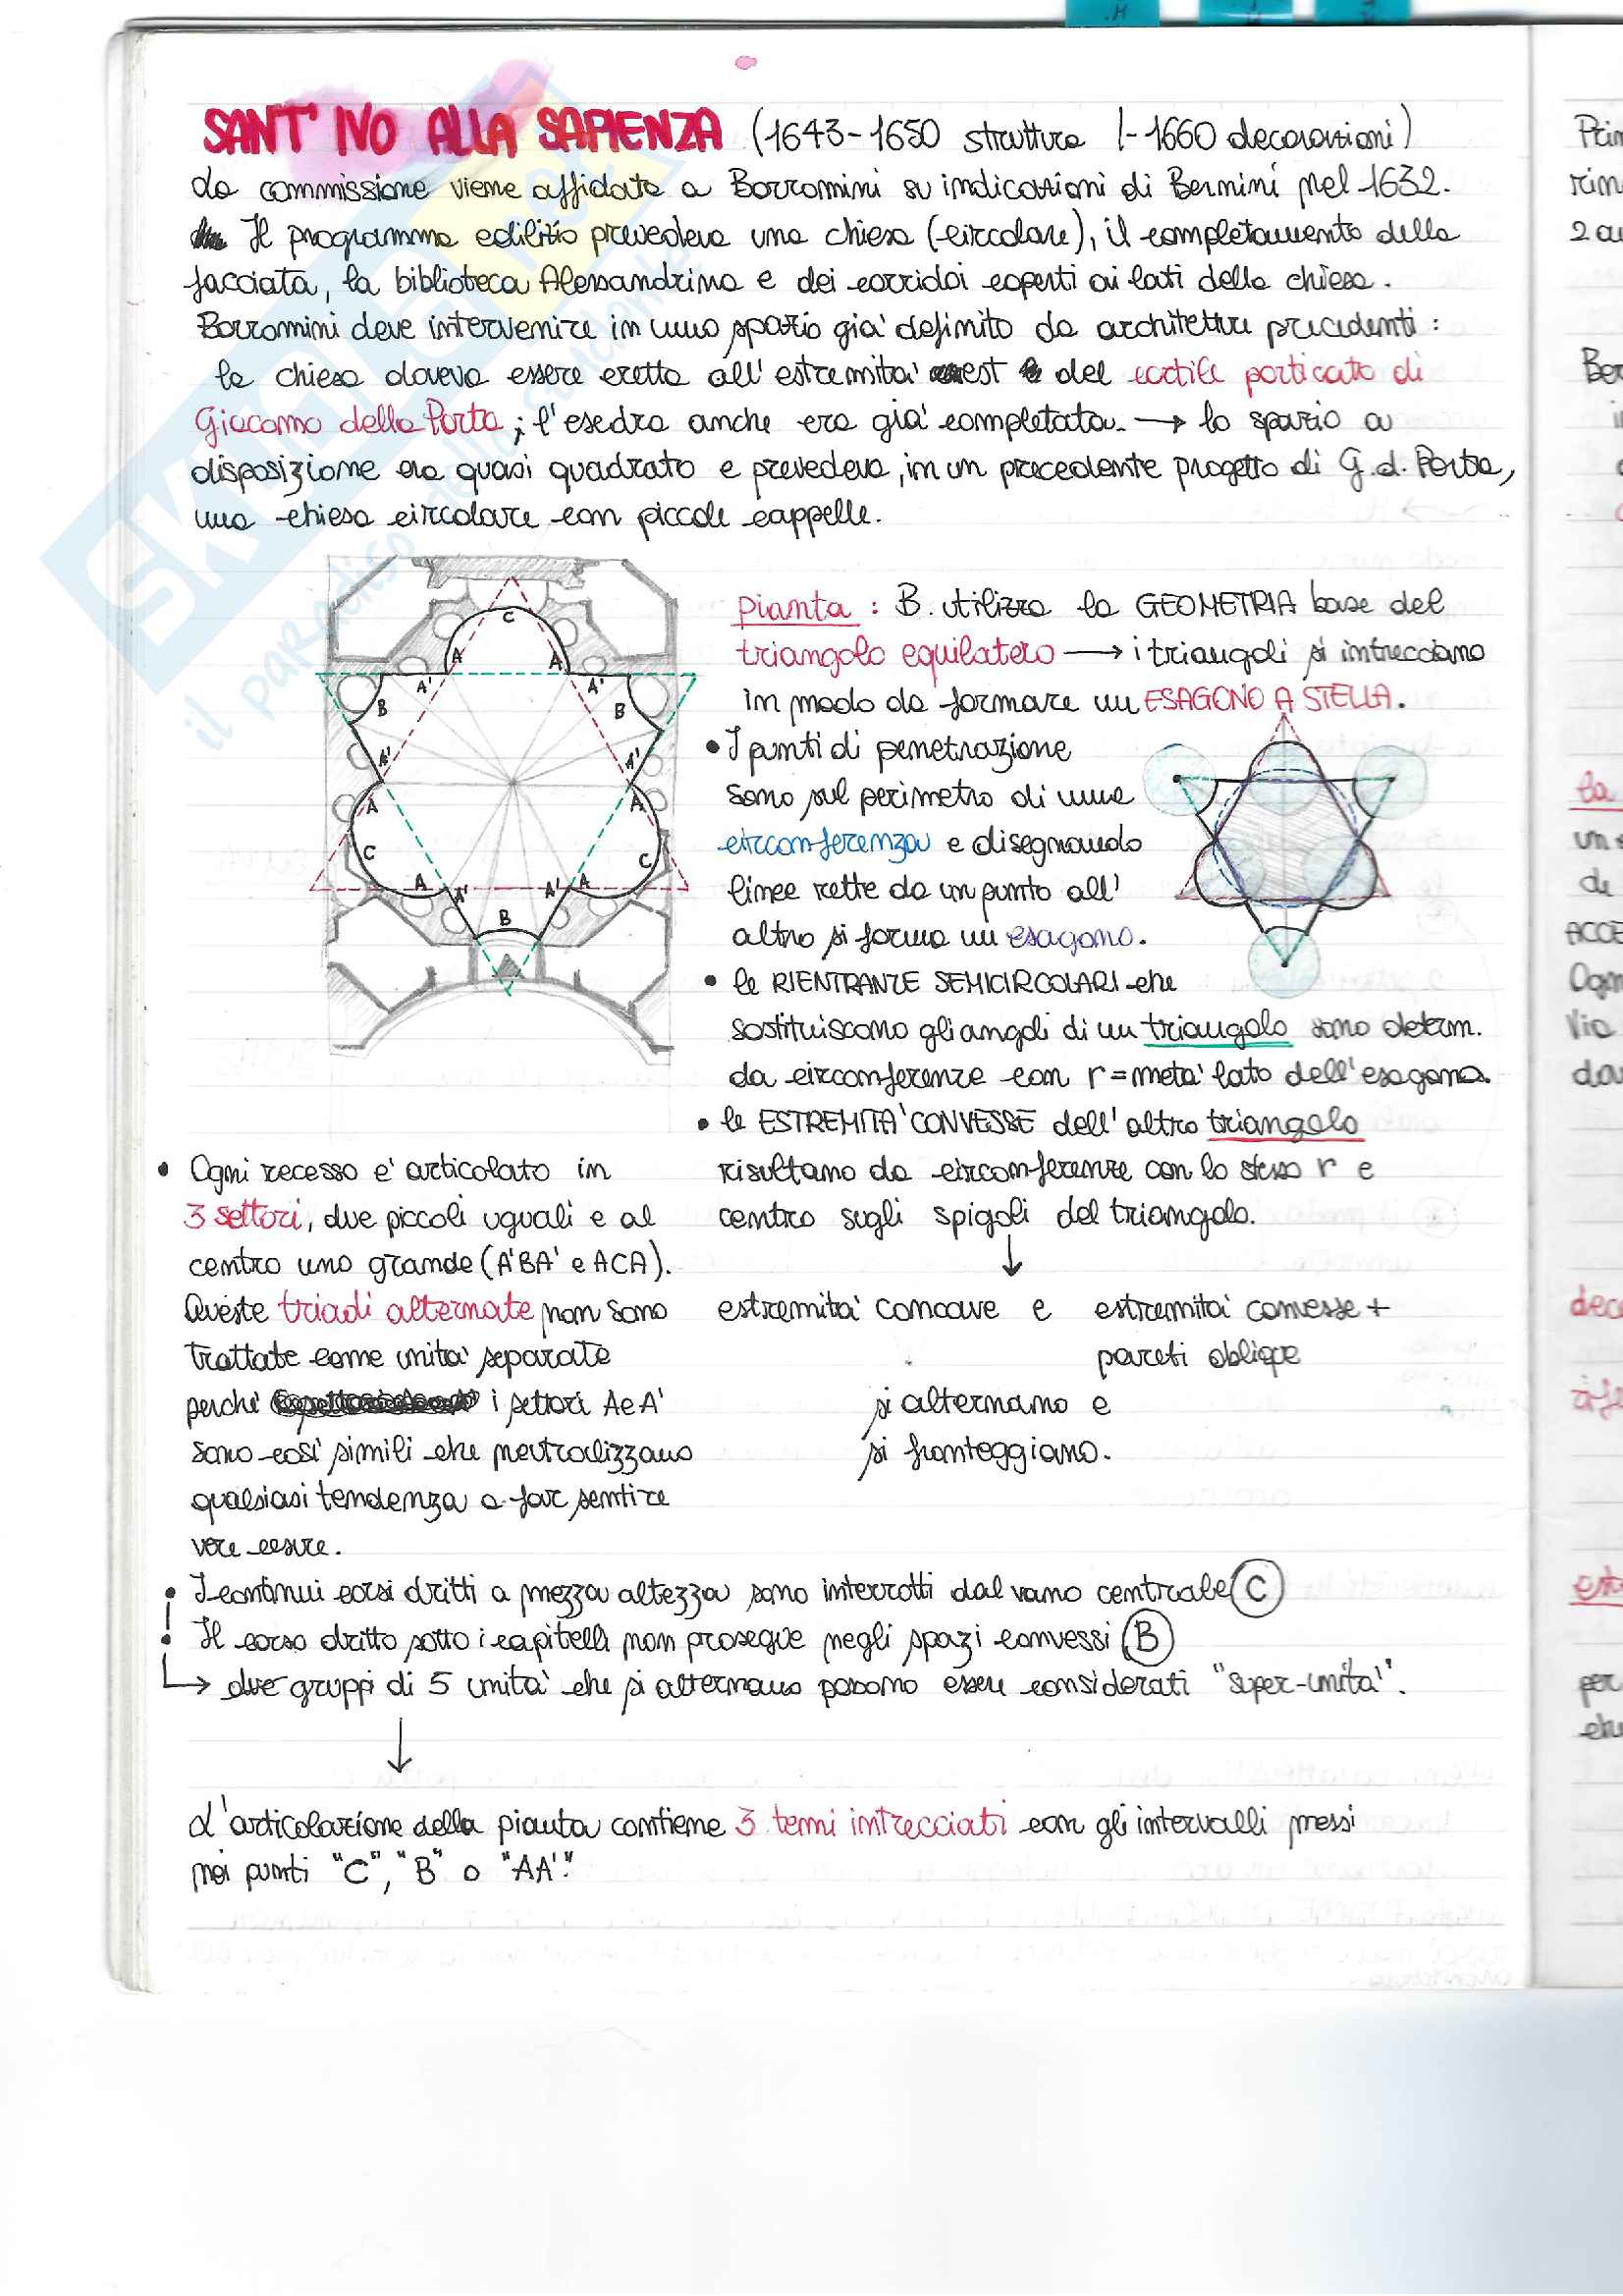 SANT' IVO ALLA SAPIENZA (1643-1650 struttura /-1660 decorazioni)
La commissione viene affidata a Borromini su indicazioni di Bernini nel 1632.
Il programma edilizio prevedeva una chiesa (circolare), il completamento della
facciata, la biblioteca Alessandrina e dei corridoi coperti ai lati della chiesa.
Borromini deve intervenire in uno spazio già definito da architetture precedenti:
la chiesa doveva essere eretta all'estremità est del cortile porticato di
Giacomo della Porta; l'esedra anche era già completata. → lo spazio a
disposizione era quasi quadrato e prevedeva, in un precedente progetto di G.d. Porta,
una chiesa circolare con piccole cappelle.
C
A A
A' A'
B B
A' A'
A A
C C
A A' A' A
B
pianta: B. utilizza la GEOMETRIA base del
triangolo equilatero → i triangoli si intrecciano
in modo da formare un ESAGONO A STELLA.
• I punti di penetrazione
sono sul perimetro di una
circonferenza e disegnando
linee rette da un punto all'
altro si forma un esagono.
• le RIENTRANZE SEMICIRCOLARI che
sostituiscono gli angoli di un triangolo sono determ.
da circonferenze con r = metà lato dell'esagono.
• le ESTREMITA' CONVESSE dell'altro triangolo
risultano da circonferenze con lo stesso r e
centro sugli spigoli del triangolo.
↓
estremità concave e estremità convesse +
pareti oblique
si alternano e
si fronteggiano.
• Ogni recesso è articolato in
3 settori, due piccoli uguali e al
centro uno grande (A'BA' e ACA).
Queste triadi alternate non sono
trattate come unità separate
perché i settori A e A'
sono così simili che neutralizzano
qualsiasi tendenza a far sentire
vere cesure.
• I continui corsi dritti a mezza altezza sono interrotti dal vano centrale C
• Il corso dritto sotto i capitelli non prosegue negli spazi convessi B
↳ due gruppi di 5 unità che si alternano possono essere considerati "super-unità".
↓
L'articolazione della pianta contiene 3 temi intrecciati con gli intervalli messi
nei punti "C", "B" o "AA'".